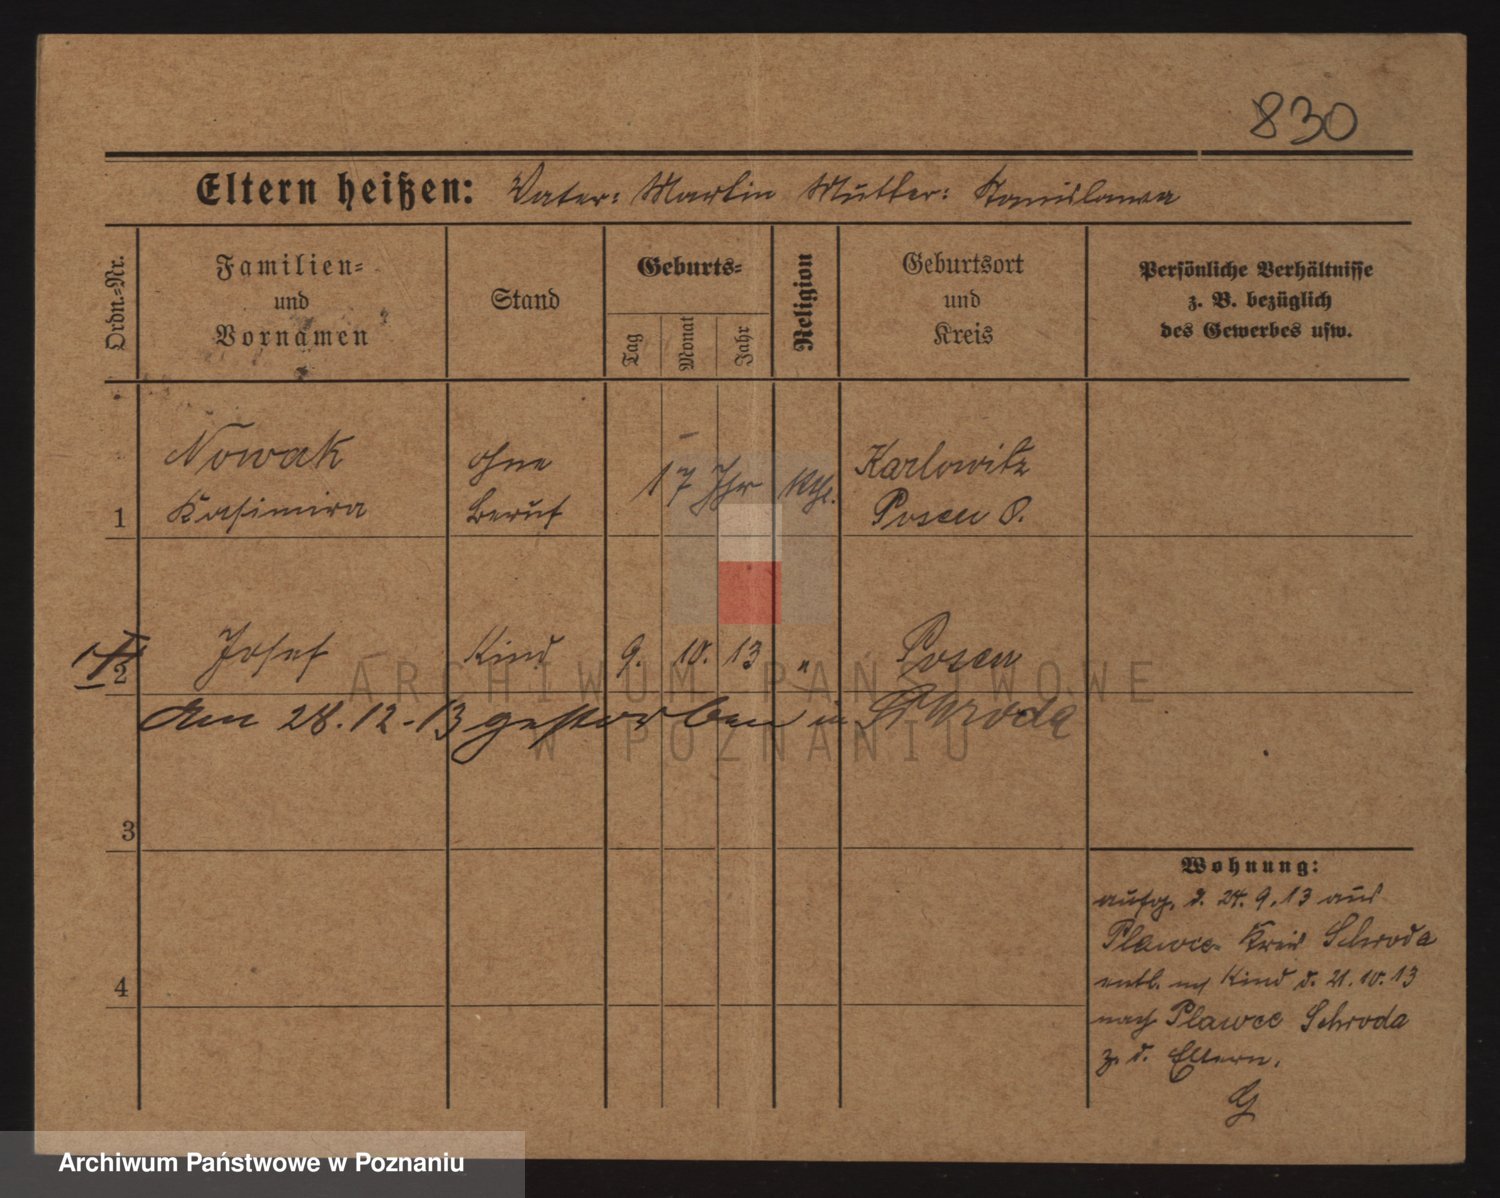 830
Eltern heißen: Vater: Martin Mutter: Stanislawa
Ordn.=Nr.
Familien=
und
Vornamen
Stand
Geburts=
Tag
Monat
Jahr
Religion
Geburtsort
und
Kreis
Persönliche Verhältnisse
z. B. bezüglich
des Gewerbes usw.
Nowak
Kasimira
ohne
Beruf
17 Jhr
Kth.
Karlowitz
Posen O.
1
Josef
Kind
9. 10. 13
"
Posen
2
Am 28.12.13 gestorben in Schroda
3
4
Wohnung:
aufg. d. 24. 9. 13 aus
Plawce Kreis Schroda
entl. m/ Kind d. 21. 10. 13
nach Plawce Schroda
z. d. Eltern.
G
ARCHIWUM PAŃSTWOWE
W POZNANIU
Archiwum Państwowe w Poznaniu